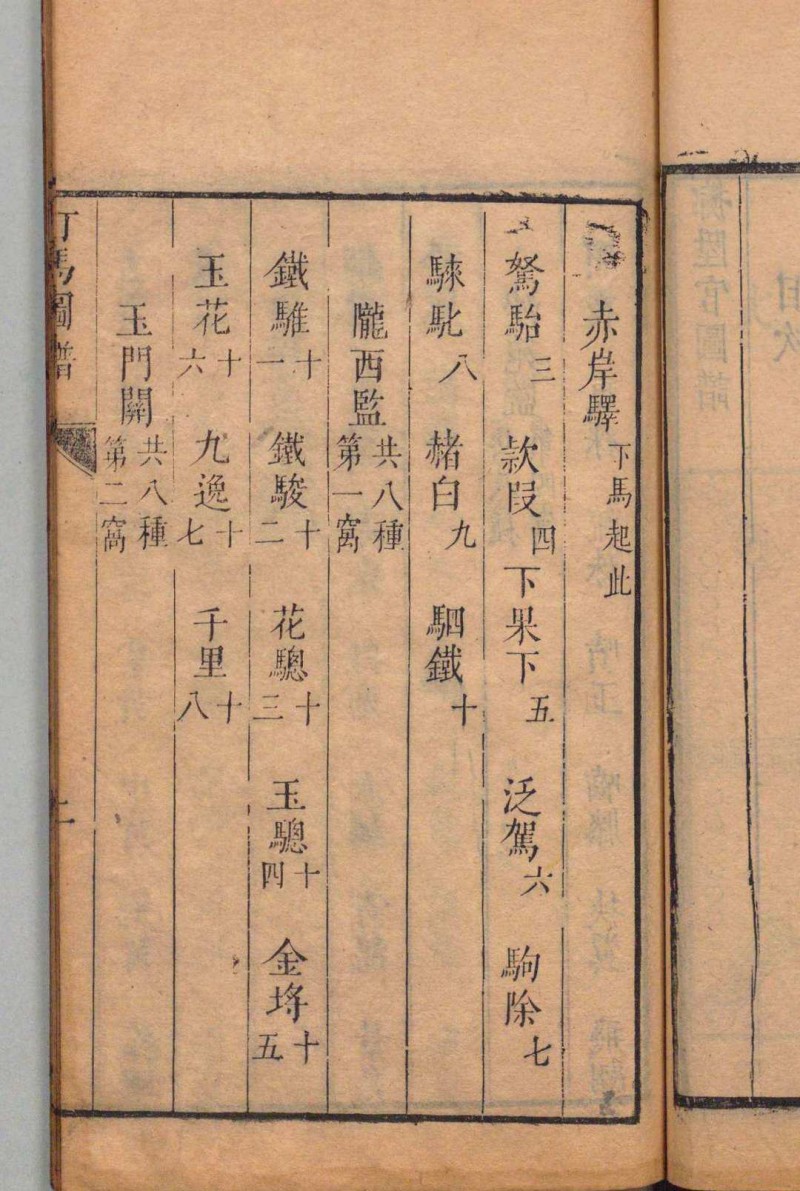 赤岸驛 下馬起此
駑駘 三 欵段 四 下果下 五 泛駕 六 駒除 七
騋駜 八 赭白 九 駟鐵 十
隴西監 共八種 第一窩
鐵騅 十一 鐵駿 十二 花驄 十三 玉驄 十四 金埒 十五
玉花 十六 九逸 十七 千里 十八
玉門關 共八種 第二窩
打馬圖譜